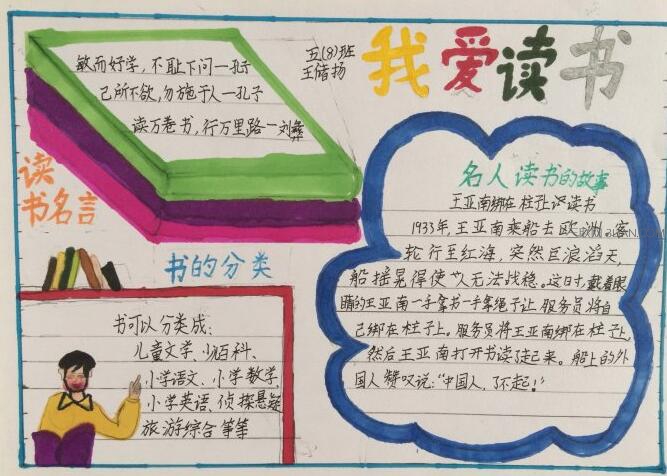 我爱读书
五(8)班
王储扬
敏而好学，不耻下问一孔子
己所不欲，勿施于人一孔子
读万卷书，行万里路一刘彝
读
书名言
书的分类
书可以分类成：
儿童文学、少百科、
小学语文、小学数学、
小学英语、侦探悬疑
旅游综合等等
名人读书的故事
王亚南绑在柱子上读书
1933年，王亚南乘船去欧洲，客
轮行至红海，突然巨浪滔天，
船摇晃得使人无法战稳。这时，戴着眼
睛的王亚南一手拿书一手拿绳子让服务员将自
己绑在柱子上。服务员将王亚南绑在柱子上，
然后王亚南打开书读起来。船上的外
国人赞叹说："中国人，了不起！"